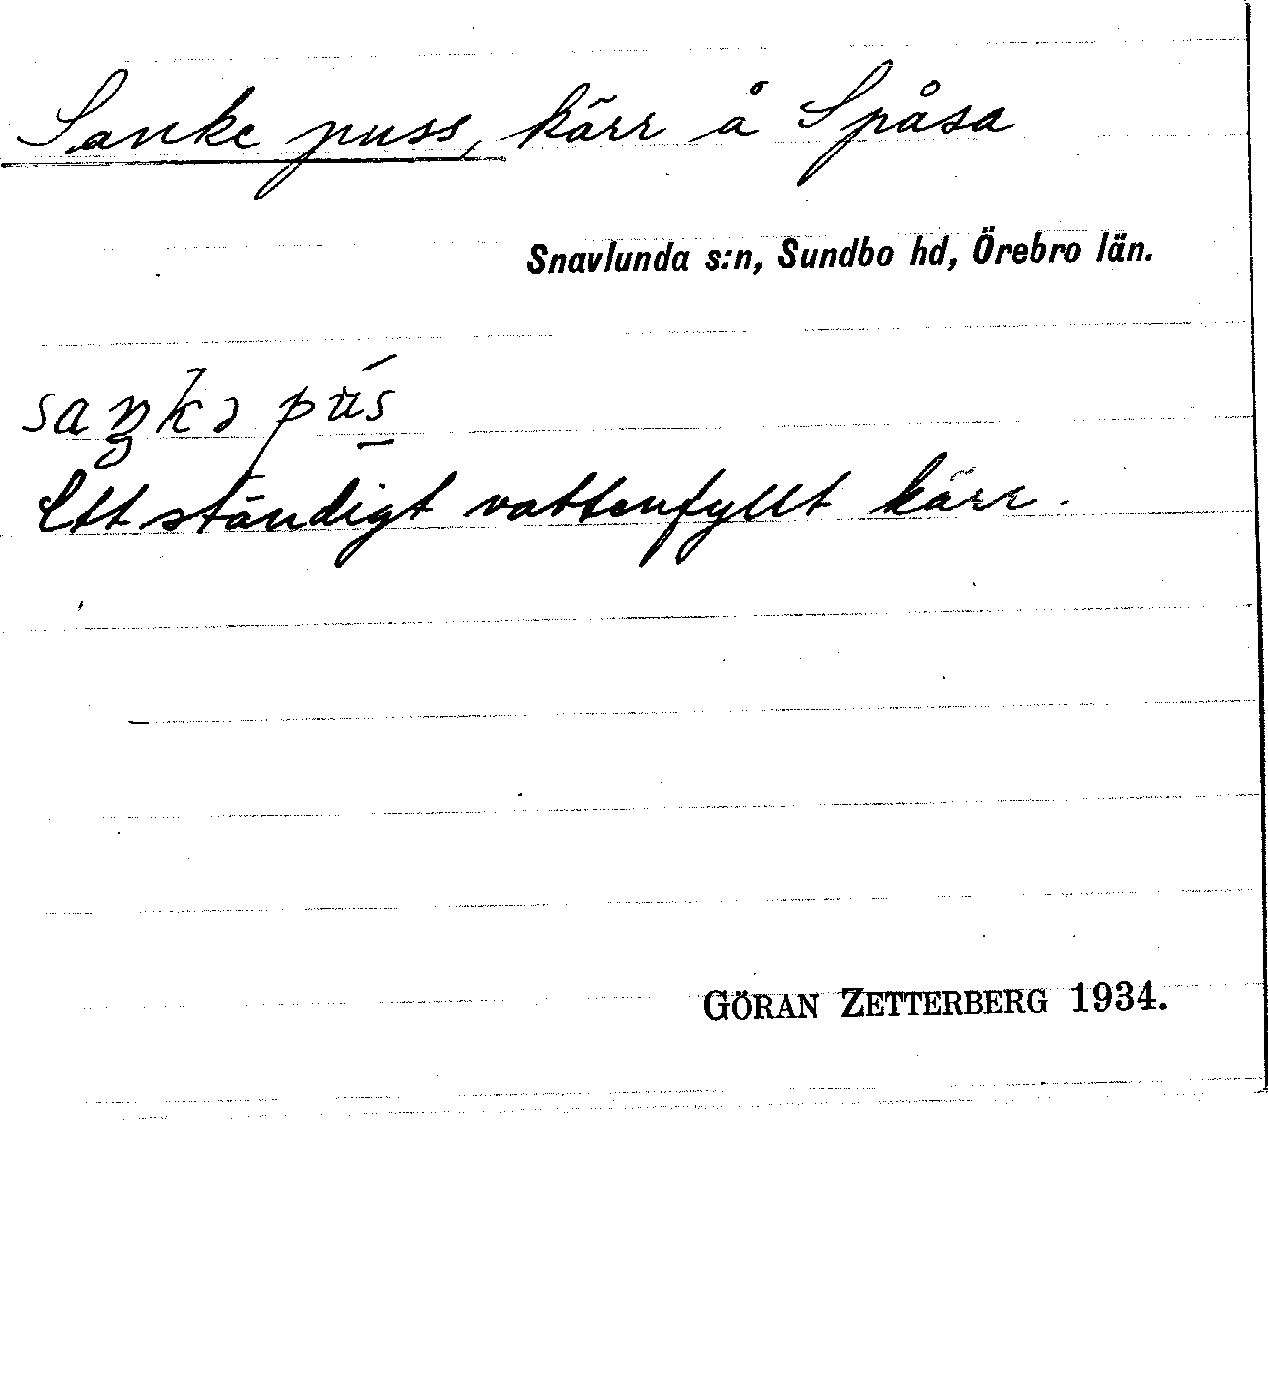 Sanke puss, kärr å Spåsa
Snavlunda s:n, Sundbo hd, Örebro län.
saŋkə pus
Ett ständigt vattenfyllt kärr.
GÖRAN ZETTERBERG 1934.